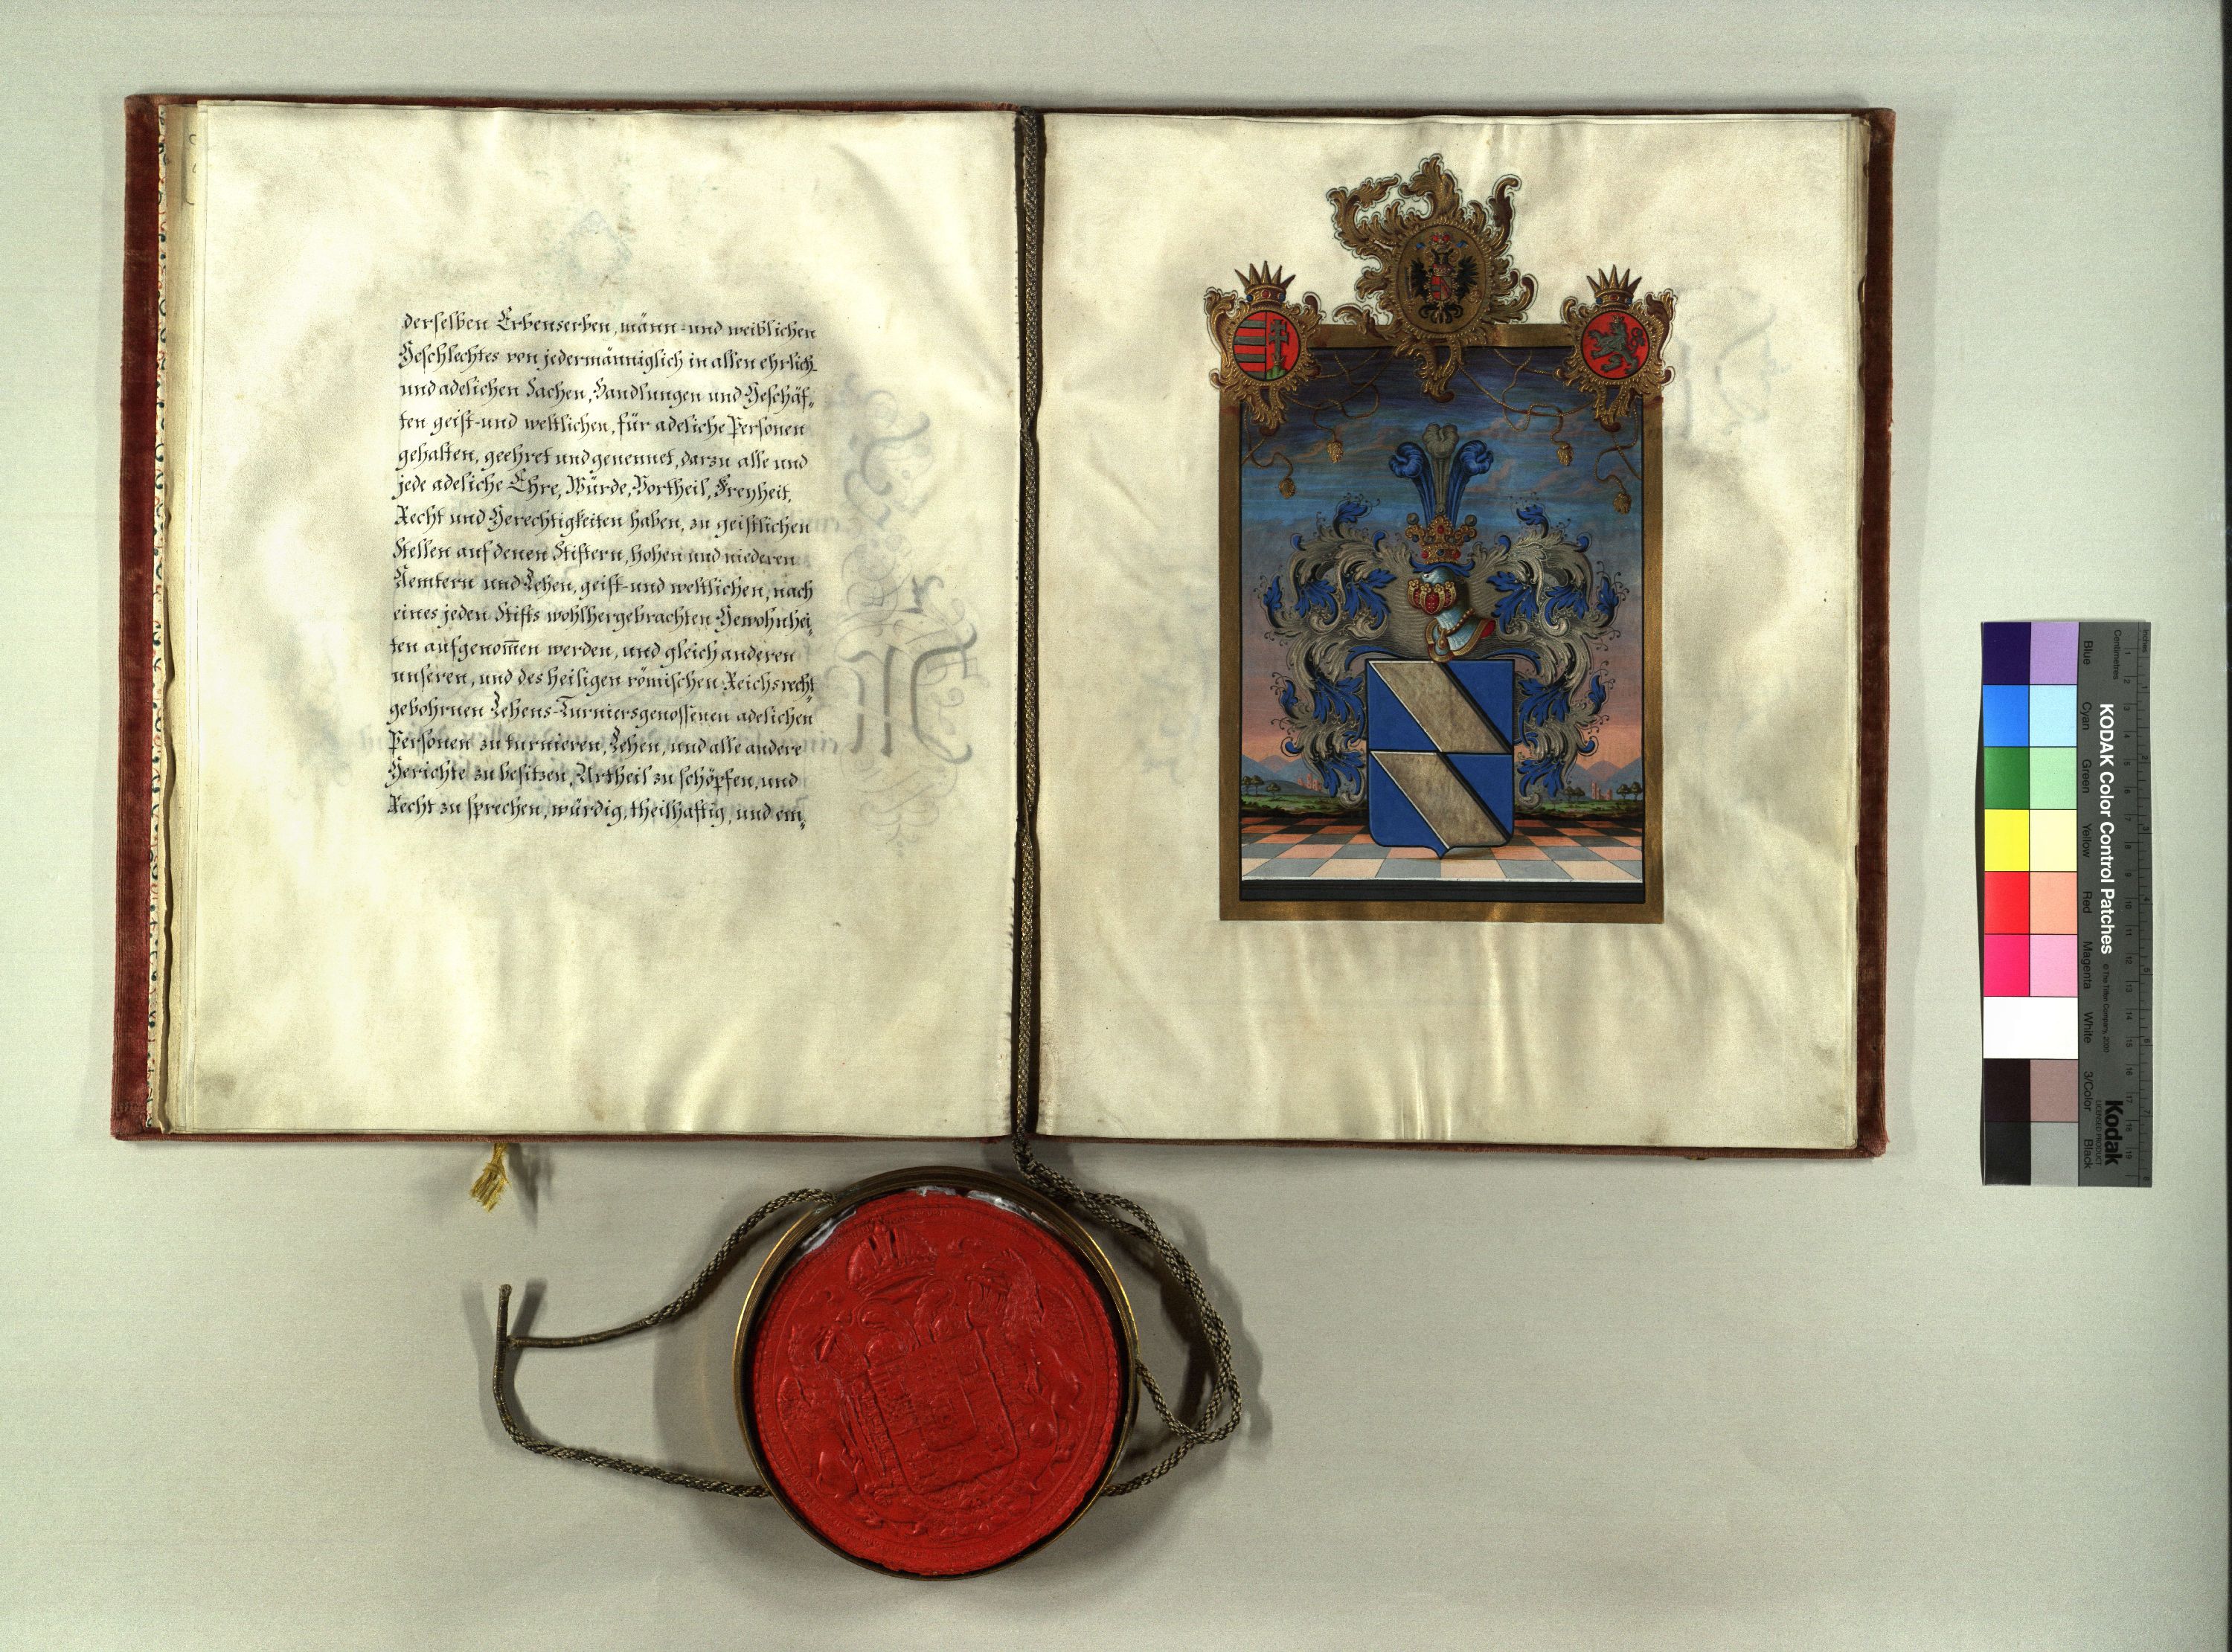 derselben Erbenserben, männ- und weiblichen
Geschlechtes von jedermänniglich in allen ehrlich-
und adelichen Sachen, Handlungen und Geschäf„
ten geist- und weltlichen, für adeliche Personen
gehalten, geehret und genennet, darzu alle und
jede adeliche Ehre, Würde, Vortheil, Freyheit,
Recht und Gerechtigkeiten haben, zu geistlichen
Stellen auf denen Stiftern, hohen und niederen
Aemtern und Lehen, geist- und weltlichen, nach
eines jeden Stifts wohlhergebrachten Gewohnhei„
ten aufgenom̅en werden, und gleich anderen
unseren, und des heiligen römischen Reichs recht„
gebohrnen Lehens-Turniersgenossenen adelichen
Personen zu turnieren, Lehen, und alle andere
Gerichte zu besitzen, Urtheil zu schöpfen, und
Recht zu sprechen, würdig, theilhaftig, und em„
KODAK Color Control Patches
© The Tiffen Company, 2000
Kodak
LICENSED PRODUCT
Inches
Centimetres
Blue
Cyan
Green
Yellow
Red
Magenta
White
3/Color
Black